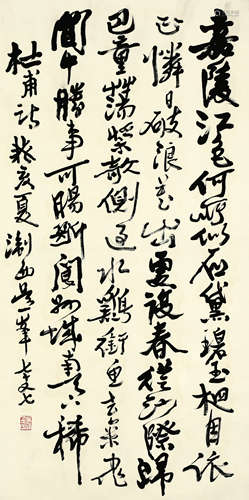 嘉陵江色何所似石黛碧玉相因依
正憐日破浪花出更復春從沙際歸
巴童蕩槳欹側過水鷄銜魚去來飛
閬中勝事可腸斷閬州城南天下稀
杜甫詩 癸亥夏 淛西吳一峯 七又七